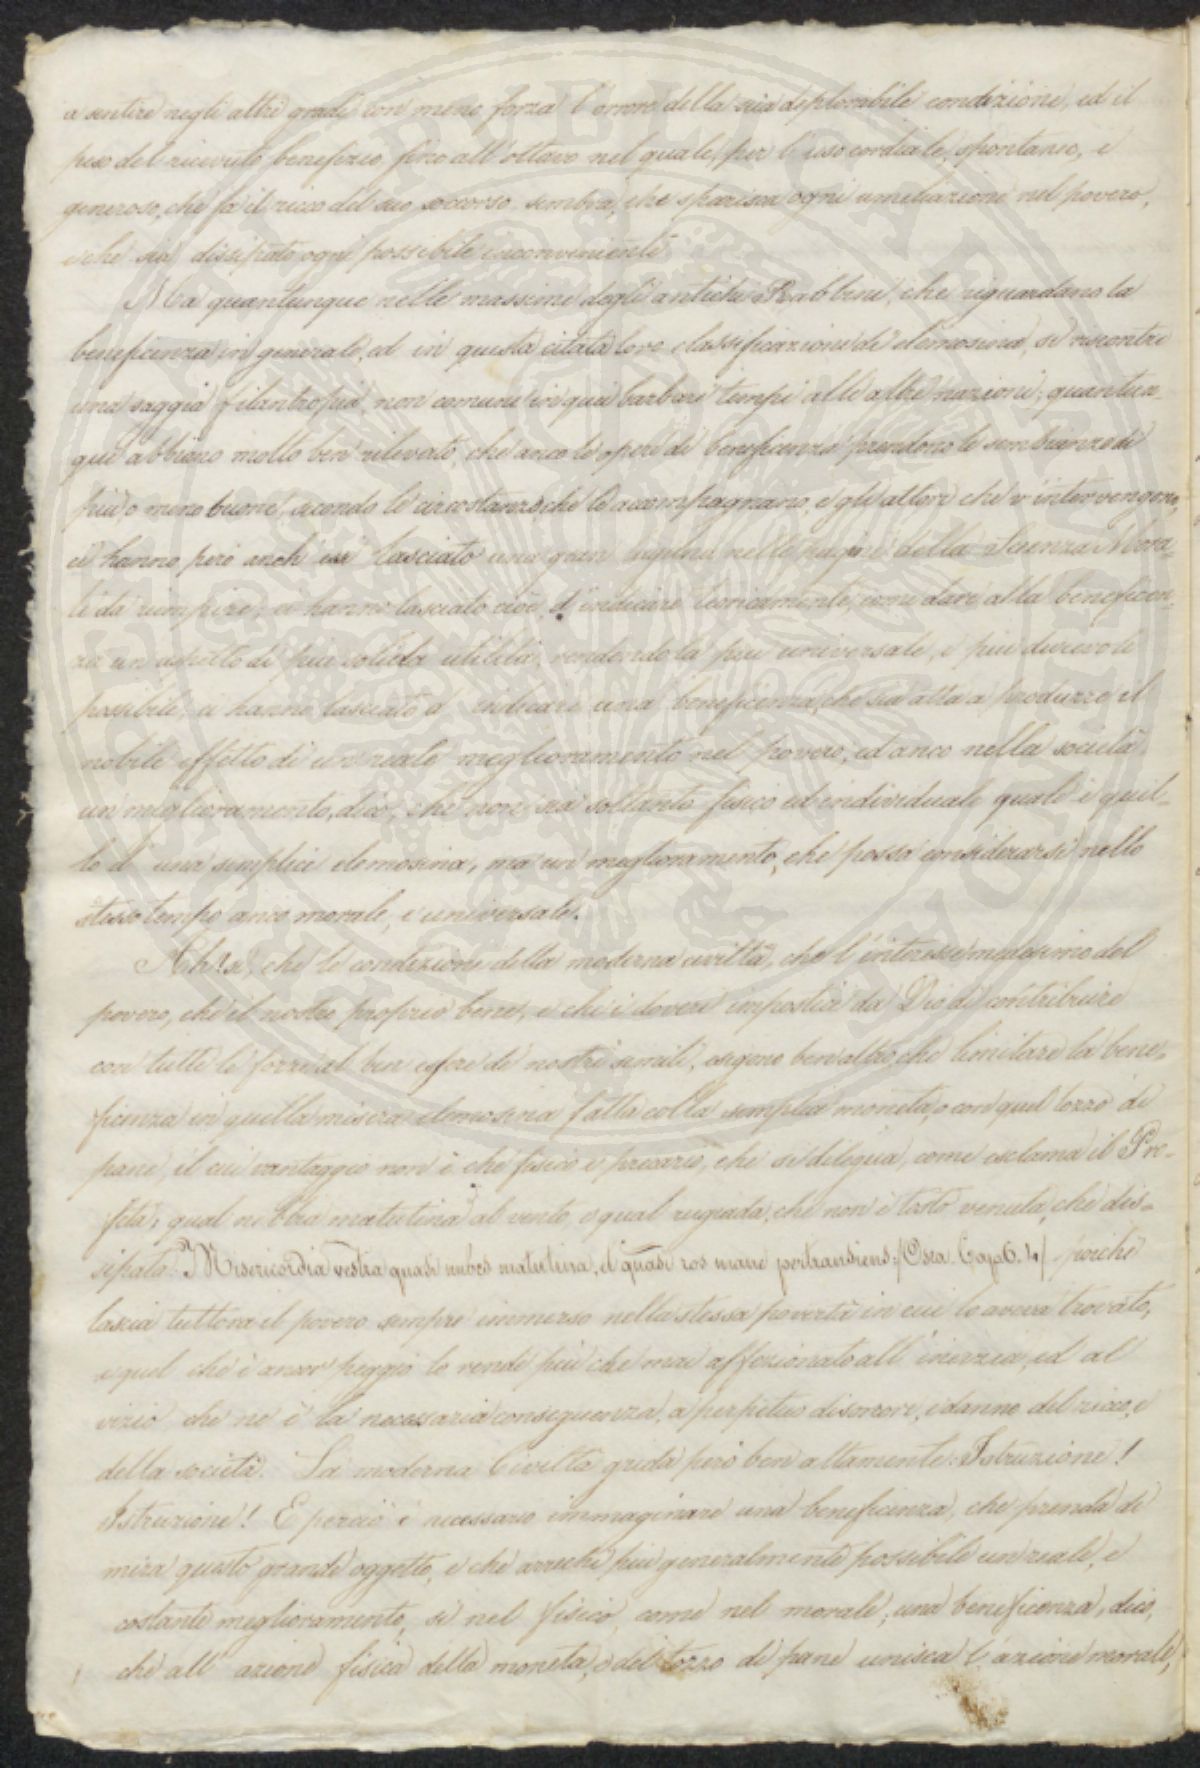 a sentire negli altri gradi con meno forza l'orrore della sua deplorabile condizione, ed il
peso del ricevuto benefizio fino all'ottavo nel quale, per l'uso cordiale, spontaneo, e
generoso, che fa il ricco del suo soccorso sembra, che sparisca ogni umiliazione nel povero,
e che sia dissipato ogni possibile inconveniente.
Ma quantunque nelle massime degli antichi Rabbini, che riguardano la
beneficenza in generale, ed in questa citata loro classificazione di elemosina, si riscontri
una saggia filantropia non comune in quei barbari tempi alle altre nazioni; quantun-
que abbiano molto ben rilevato, che anco le opere di beneficenza prendono le sembianze di
più, o meno buone, secondo le circostanze che le accompagnano, e gli attori che v'intervengono,
ci hanno però anch'essi lasciato una gran laguna nelle pagine della Scienza Mora-
le da riempire; ci hanno lasciato cioè d'indicare teoricamente, come dare alla beneficen-
za un aspetto di più solida utilità, rendendola più universale, e più durevole
possibile; ci hanno lasciato d'indicare una beneficenza, che sia atta a produrre il
nobile effetto di un reale miglioramento nel povero, ed anco nella società
un miglioramento, dico, che non sia soltanto fisico ed individuale quale è quel-
lo d'una semplice elemosina, ma un miglioramento, che possa considerarsi nello
stesso tempo anco morale, e universale.
Ah! sì, che le condizioni della moderna civiltà, che l'interesse medesimo del
povero, che il nostro proprio bene, e che i doveri impostici da Dio di contribuire
con tutte le forze al ben essere de' nostri simili, esigono ben altro, che limitare la bene-
ficenza in quella misera elemosina fatta colla semplice moneta, o con quel tozzo di
pane, il cui vantaggio non è che fisico e precario, che si dilegua, come esclama il Pro-
feta: qual nebbia matutina al vento, e qual rugiada, che non è tosto venuta, che dis-
sipata: Misericordia vestra quasi nubes matutina, et quasi ros mane pertransiens: /Osea. Cap. 6. 4/ poichè
lascia tuttora il povero sempre immerso nella stessa povertà in cui lo aveva trovato,
e quel che è ancor peggio lo rende più che mai affezionato all'inerzia, ed al
vizio che ne è la necessaria conseguenza, a perpetuo disonore, e danno del ricco, e
della società. La moderna Civiltà grida però ben altamente: Istruzione!
Istruzione! E perciò è necessario immaginare una beneficenza, che prenda di
mira questo grande oggetto, e che arrechi più generalmente possibile un reale, e
costante miglioramento, sì nel fisico, come nel morale; una beneficenza, dico,
che all'azione fisica della moneta, o del tozzo di pane unisca l'azione morale,